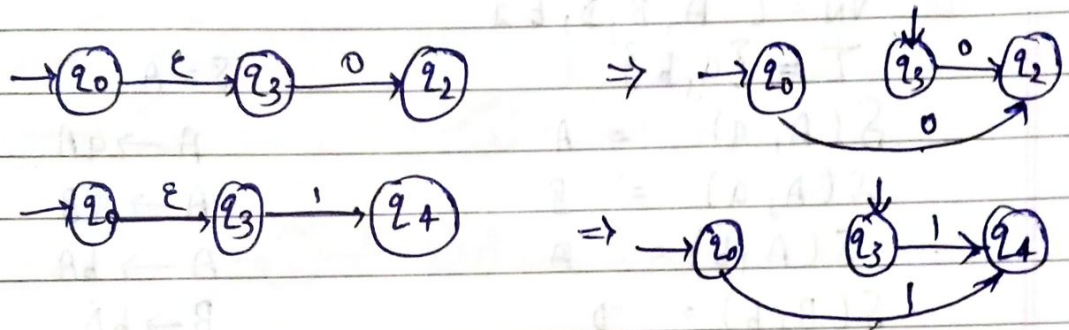 → q0 ε→ q3 0→ q2 ⇒ → q0 q3 0→ q2
0
→ q0 ε→ q3 1→ q4 ⇒ → q0 q3 1→ q4
1